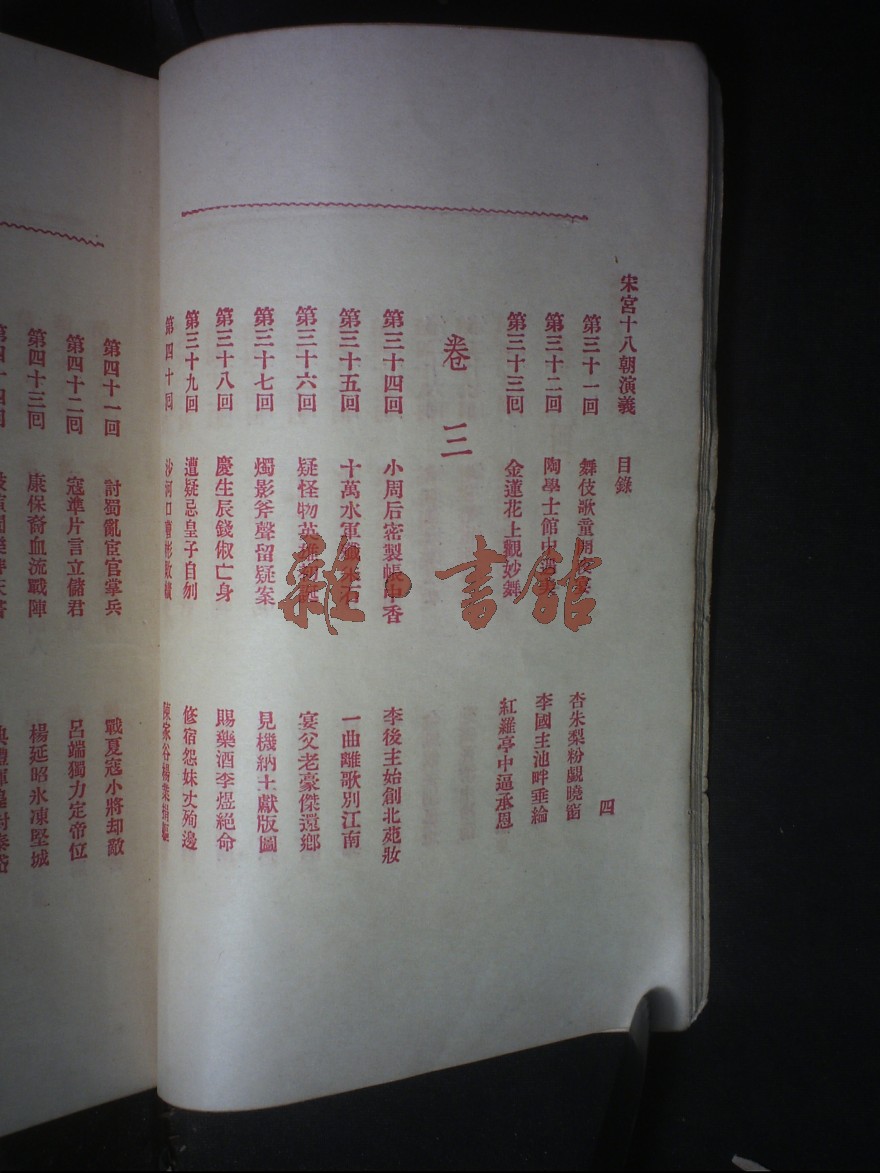 宋宮十八朝演義 目錄 四
第三十一回 舞伎歌童 杏朱梨粉覷曉窗
第三十二回 陶學士館中 李國主池畔垂綸
第三十三回 金蓮花上觀妙舞 紅羅亭中逼承恩
卷三
第三十四回 小周后密製帳中香 李後主始創北苑妝
第三十五回 十萬水軍 一曲離歌別江南
第三十六回 疑怪物英 宴父老豪傑還鄉
第三十七回 燭影斧聲留疑案 見機納土獻版圖
第三十八回 慶生辰錢俶亡身 賜藥酒李煜絕命
第三十九回 遭疑忌皇子自刎 修宿怨妹丈殉邊
第四十回 沙河口曹彬敗績 陳家谷楊業捐軀
第四十一回 討蜀亂宦官掌兵 戰夏寇小將却敵
第四十二回 寇準片言立儲君 呂端獨力定帝位
第四十三回 康保裔血流戰陣 楊延昭氷凍堅城
第四十四回
雜·書館